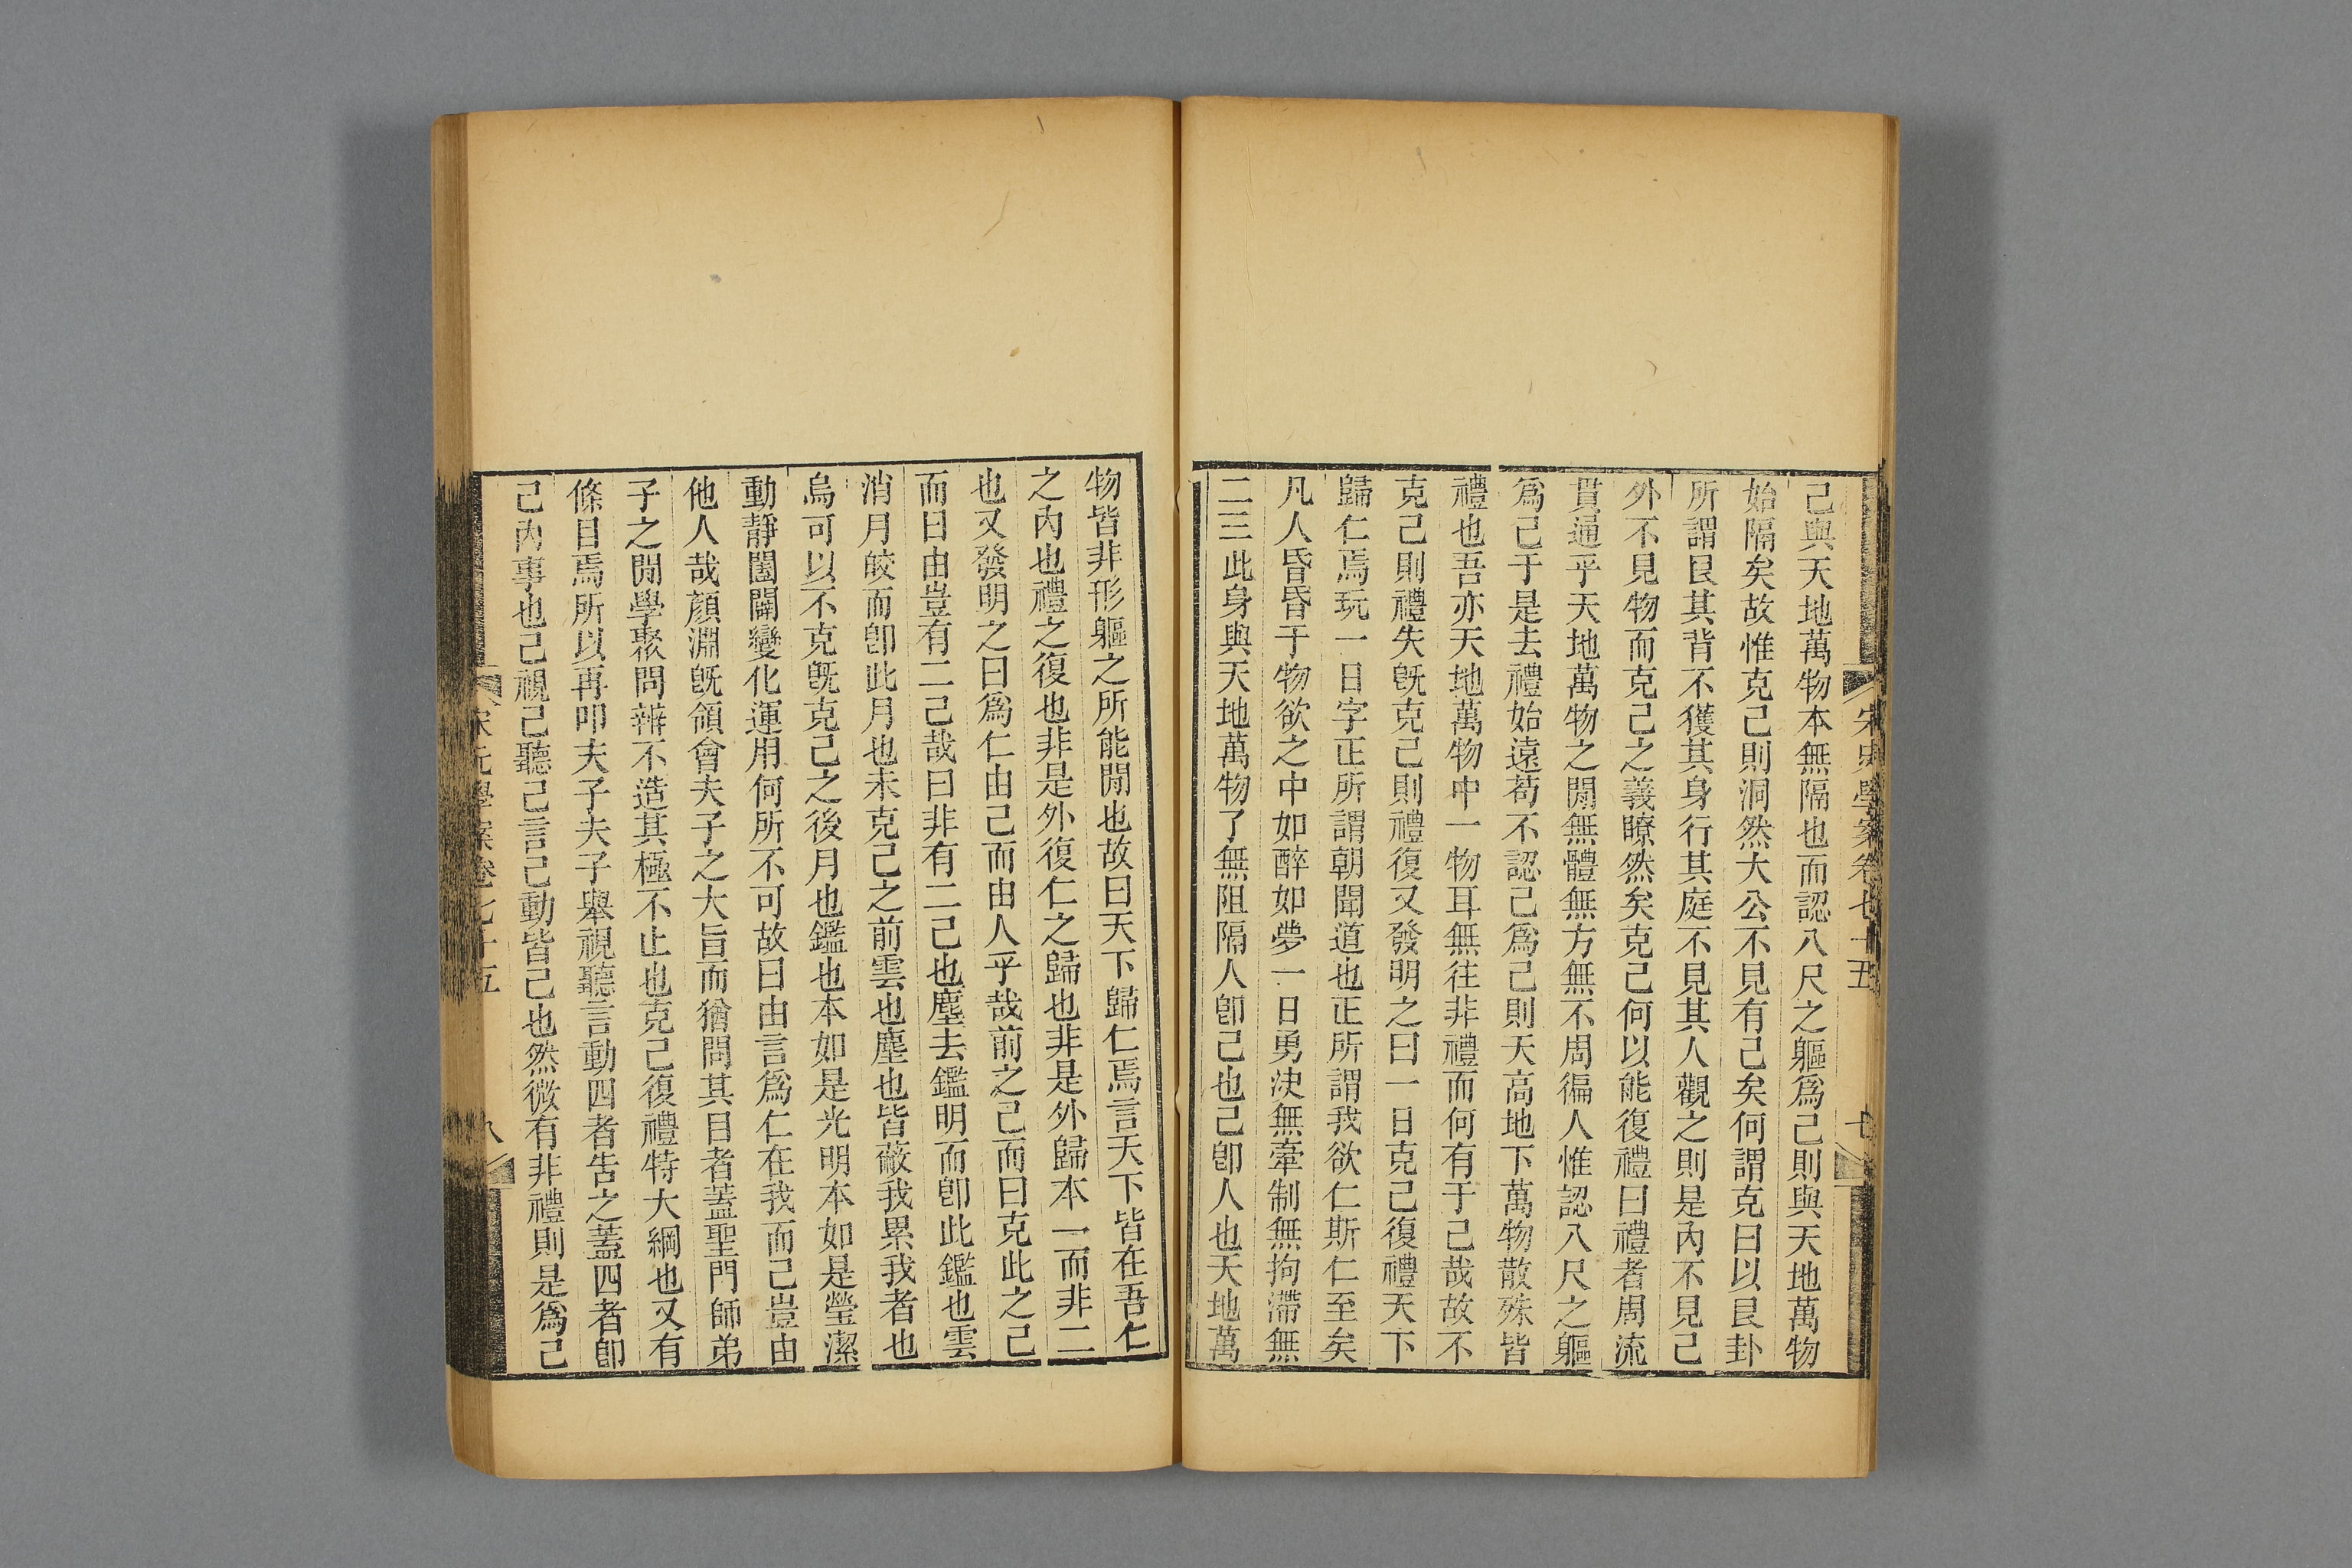 己與天地萬物本無隔也而認八尺之軀爲己則與天地萬物
始隔矣故惟克己則洞然大公不見有己矣何謂克曰以艮卦
所謂艮其背不獲其身行其庭不見其人觀之則是內不見己
外不見物而克己之義瞭然矣克己何以能復禮曰禮者周流
貫通乎天地萬物之閒無體無方無不周徧人惟認八尺之軀
爲己于是去禮始遠苟不認己爲己則天高地下萬物散殊皆
禮也吾亦天地萬物中一物耳無往非禮而何有于己哉故不
克己則禮失旣克己則禮復又發明之曰一日克己復禮天下
歸仁焉玩一日字正所謂朝聞道也正所謂我欲仁斯仁至矣
凡人昏昏于物欲之中如醉如夢一日勇決無牽制無拘滯無
二三此身與天地萬物了無阻隔人卽己也己卽人也天地萬
宋元學案卷七十五
七
物皆非形軀之所能閒也故曰天下歸仁焉言天下皆在吾仁
之內也禮之復也非是外復仁之歸也非是外歸本一而非二
也又發明之曰爲仁由己而由人乎哉前之己而曰克此之己
而曰由豈有二己哉曰非有二己也塵去鑑明而卽此鑑也雲
消月皎而卽此月也未克己之前雲也塵也皆蔽我累我者也
烏可以不克旣克己之後月也鑑也本如是光明本如是瑩潔
動靜闔闢變化運用何所不可故曰由言爲仁在我而己豈由
他人哉顏淵旣領會夫子之大旨而猶問其目者蓋聖門師弟
子之閒學聚問辨不造其極不止也克己復禮特大綱也又有
條目焉所以再叩夫子夫子舉視聽言動四者告之蓋四者卽
己內事也己視己聽己言己動皆己也然微有非禮則是爲己
宋元學案卷七十五
八